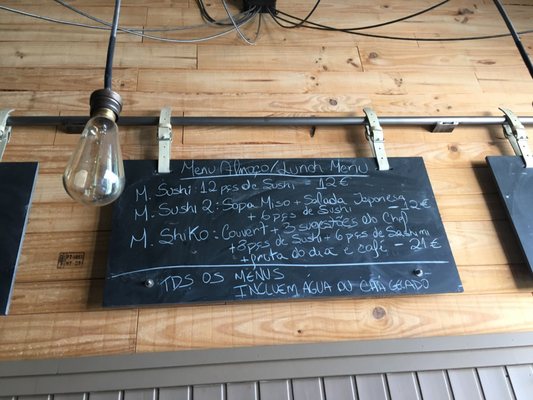 Menu Almoço/Lunch Menu
M. Sushi: 12 pçs de Sushi = 12€
M. Sushi 2: Sopa Miso + Salada Japonesa
+ 6 pçs de Sushi - 12€
M. Shiko: Couvert + 3 sugestões do Chef
+ 3 pçs de Sushi + 6 pçs de Sashimi
+ fruta do dia e café - 21€
TDS OS MENUS
INCLUEM ÁGUA OU CHÁ GELADO